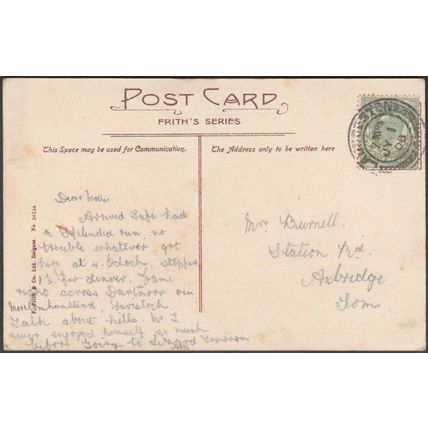 POST CARD
FRITH'S SERIES
This Space may be used for Communication.
The Address only to be written here
Dear
Arrived Safe had
a Splendid run no
trouble whatever got
here at 4. Ocloch. stopped
for dinner. Came
across Dartmoor via
Tavistock
Talk about hills.
never enjoyed himself so much
before Going to
Mrs Burnell
Station Rd
Axbridge
Som
F. Frith & Co. Ltd. Reigate. No
MY 1
08